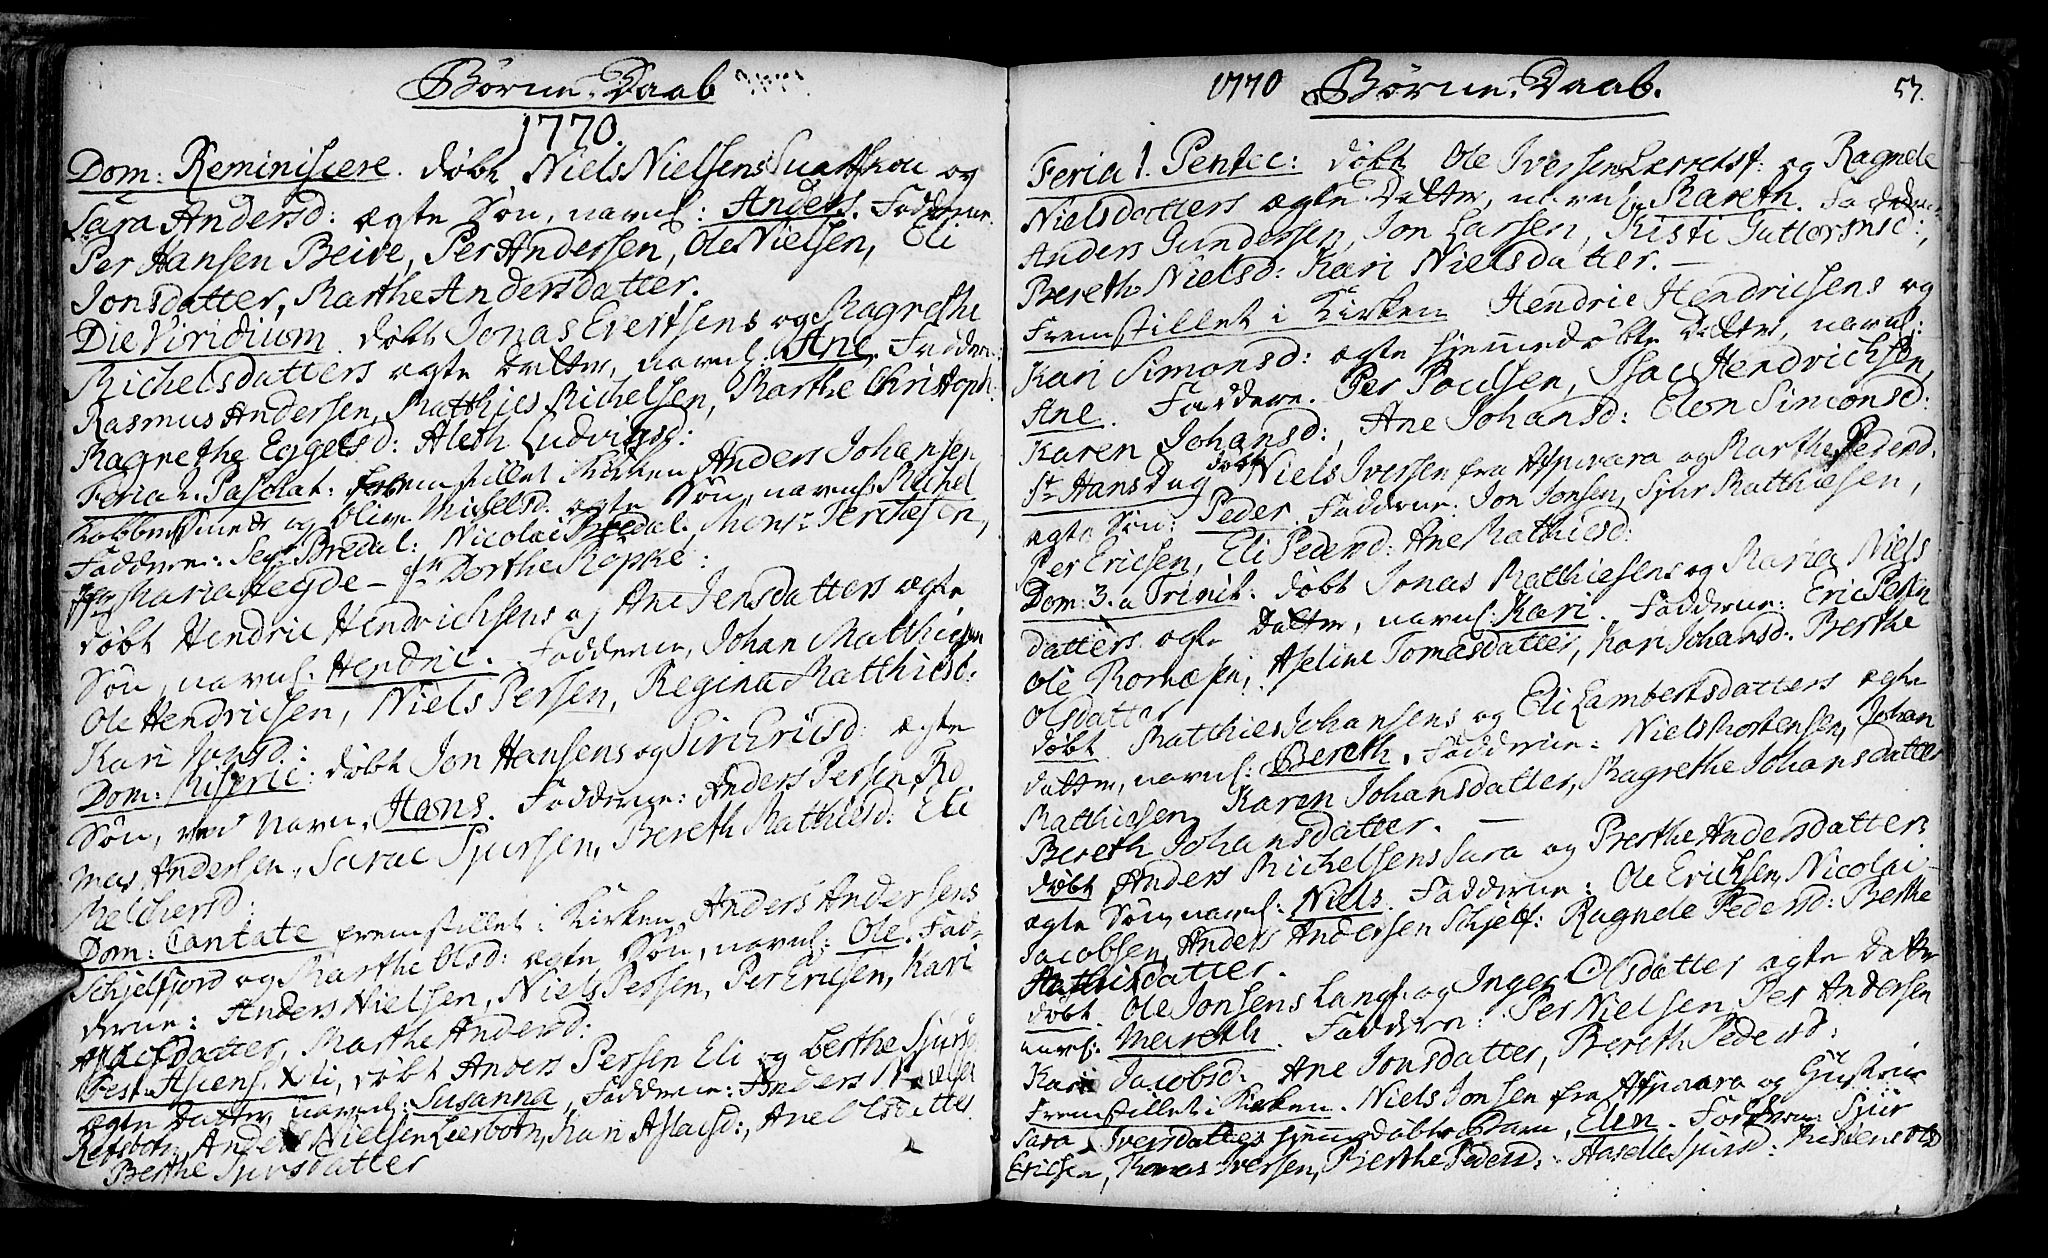 Börne-Daab
1770.
Dom: Reminiscere. döbt Niels Nielsens og
Sara Andersd: ægte Sön, navnl: Anders. Fadderne.
Per Hansen Beive, Per Andersen, Ole Nielsen, Eli
Jonsdatter, Marthe Andersdatter.
Die Viridium döbt Jonas Evertsens og Magrethe
Michelsdatters ægte Datter, navnl: Ane. Faddere:
Rasmus Andersen, Matthies Michelsen, Marthe Christoph:
Magrethe Eggelsd: Aleth Ludvigsd:
Feria 2. Paschat: fremstillet i Kirken Anders Johansen
og Olive Michelsd. ægte Sön, navnl: Michel
Fadderne: Sr Bredal: Nicolai Bredal. Mons:
Maria Heyde - Dorthe Röpke:
döbt Hendric Hendrichsens og Ane Jensdatters ægte
Sön, navnl. Hendric. Fadderne, Johan Matthiesen
Ole Hendricsen, Niels Persen, Regina Matthiesd:
Kari Jonsd:
Dom: Miseric: döbt Jon Hansens og Siri Ericsd: ægte
Sön, ved Navn, Hans. Fadderne: Anders Persen, To
mas Andersen, Sarae Sjursen, Bereth Mathiesd: Eli
Melchersd:
Dom: Cantate fremstillet i Kirken Anders Andersens
Schjelfjord og Marthe Olsd: ægte Sön, navnl: Ole. Fad-
derne: Anders Nielsen, Niels Persen, Per Ericsen, Kari
Aslacsdatter, Marthe Andersd:
Fest. Ascens. Xti, döbt Anders Persen Eli og Berthe Sjursd
ægte Datter, navnl: Susanna, Fadderne: Anders Nielsen
Anders Nielsen Leerbotn, Kari Aslacsd:, Ane Olsdatter
Berthe Sjursdatter
1770 Börne-Daab. 57.
Feria 1. Pentec: döbt Ole Iversen og Ragnele
Nielsdatters ægte Datter, navnl. Mareth. Fadderne
Anders Gundersen, Jon Larsen, Kisti Guttormsd:,
Bereth Nielsd: Kari Nielsdatter. -
Fremstillet i Kirken Hendric Hendricsens og
Kari Simonsd: ægte hjemmedöbte Datter, navnl:
Ane. Faddere. Per Poulsen, Isac Hendrichsen,
Karen Johansd:, Ane Johansd: Elen Simonsd:
St Hans Dag döbt Niels Iversen fra Afsnvara og Marthe Pedersd.
ægte Sön: Peder. Fadderne: Jon Jonsen, Sjur Matthiesen,
Per Ericsen, Eli Pedersd: Ane Mathiesd:
Dom: 3. a Trinit. döbt Jonas Matthiesens og Maria Niels
datters ægte Datter, navnl: Kari. Fadderne: Eric Persen
Ole, Aseline Tomasdatter, Kari Johansd: Berthe
Olsdatter
döbt Matthies Johansens og Eli Lambertsdatters ægte
datter, navnl: Bereth. Fadderne: Niels Mortensen, Johan
Matthiesen, Karen Johansdatter, Magrethe Johansdatter
Bereth Johansdatter. -
döbt Anders Michelsens Sara og Berthe Andersdatters
ægte Sön, navnl: Niels. Fadderne: Ole Erichsen, Nicolai
Jacobsen, Anders Andersen Schjelf: Ragnele Pedersd: Berthe
Mathisdatter.
döbt Ole Jonsens Langf. og Inger Olsdatter ægte Datter
navnl: Mareth. Fadderne: Per Nielsen, Per Andersen
Kari Jacobsd: Ane Jonsdatter, Bereth Pedersd:
Fremstillet i Kirken. Niels Jonsen fra Afsnvara og
Sara Iversdatters hjemmedöbte Barn, Elen. Fadderne: Sjur
Ericsen, Tomas Iversen, Berthe Pedersd: Sjursd: